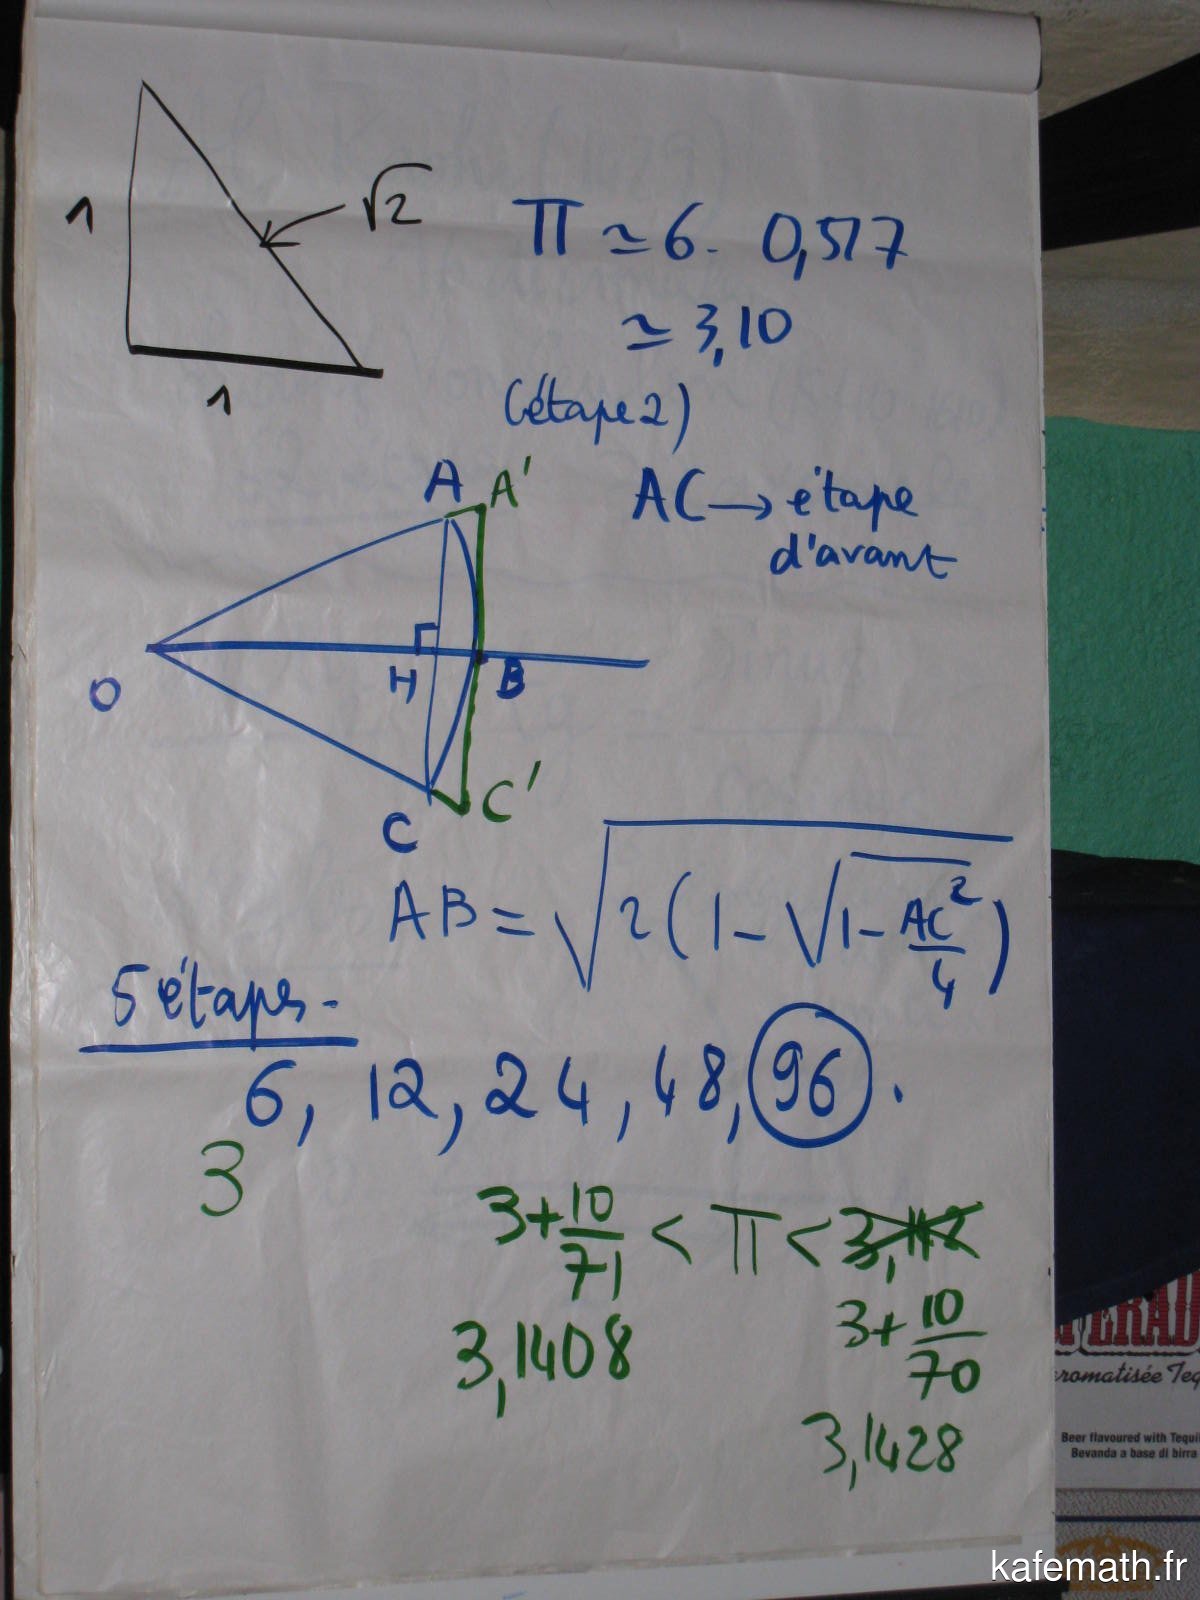 1
√2
1
π ≃ 6. 0,517
≃ 3,10
(étape 2)
A A'
AC → étape
d'avant
O
H B
C'
C
AB = √(2(1-√(1-AC²/4)))
5 étapes.
6, 12, 24, 48, 96.
3
3+10/71 < π < 3,142
3+10/70
3,1408
3,1428
ERAD
romatisée Teq
Beer flavoured with Tequi
Bevanda a base di birra
kafemath.fr